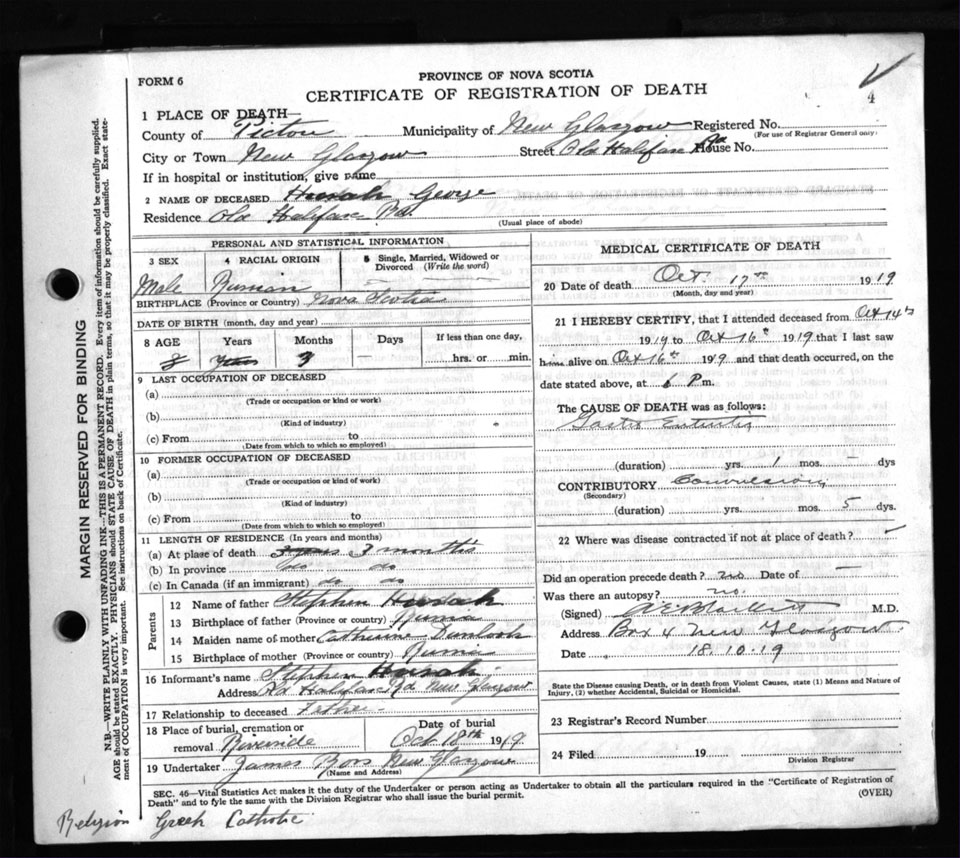 FORM 6
PROVINCE OF NOVA SCOTIA
CERTIFICATE OF REGISTRATION OF DEATH
4
1 PLACE OF DEATH
County of Pictou Municipality of New Glasgow Registered No.
(For use of Registrar General only)
City or Town New Glasgow Street Old Halifax Rd House No.
If in hospital or institution, give name
2 NAME OF DECEASED George
Residence Old Halifax Rd.
(Usual place of abode)
PERSONAL AND STATISTICAL INFORMATION
3 SEX 4 RACIAL ORIGIN 5 Single, Married, Widowed or Divorced (Write the word)
Male
BIRTHPLACE (Province or Country) Nova Scotia
DATE OF BIRTH (month, day and year)
8 AGE Years Months Days If less than one day,
3 hrs. or min.
9 LAST OCCUPATION OF DECEASED
(a)
(Trade or occupation or kind of work)
(b)
(Kind of industry)
(c) From to
(Date from which to which so employed)
10 FORMER OCCUPATION OF DECEASED
(a)
(Trade or occupation or kind of work)
(b)
(Kind of industry)
(c) From to
(Date from which to which so employed)
11 LENGTH OF RESIDENCE (In years and months)
(a) At place of death 3 months
(b) In province do do
(c) In Canada (if an immigrant) do do
Parents
12 Name of father Stephen
13 Birthplace of father (Province or country)
14 Maiden name of mother Catherine
15 Birthplace of mother (Province or country)
16 Informant's name Stephen
Address Old Halifax Rd New Glasgow
17 Relationship to deceased Father
18 Place of burial, cremation or removal Riverside Date of burial Oct 18th 1919
19 Undertaker James New Glasgow
(Name and Address)
MEDICAL CERTIFICATE OF DEATH
20 Date of death Oct. 17th 1919
(Month, day and year)
21 I HEREBY CERTIFY, that I attended deceased from Oct 14th
1919 to Oct 16th 1919 that I last saw
him alive on Oct 16th 1919 and that death occurred, on the
date stated above, at P.m.
The CAUSE OF DEATH was as follows:
Gastro Enteritis
(duration) yrs. 1 mos. – dys
CONTRIBUTORY Convulsions
(Secondary)
(duration) yrs. mos. 5 dys.
22 Where was disease contracted if not at place of death?
Did an operation precede death? no Date of –
Was there an autopsy? no.
(Signed) M.D.
Address Box 4 New Glasgow
Date 18.10.19
State the Disease causing Death, or in death from Violent Causes, state (1) Means and Nature of
Injury, (2) whether Accidental, Suicidal or Homicidal.
23 Registrar's Record Number
24 Filed 19
Division Registrar
SEC. 46—Vital Statistics Act makes it the duty of the Undertaker or person acting as Undertaker to obtain all the particulars required in the "Certificate of Registration of
Death" and to fyle the same with the Division Registrar who shall issue the burial permit. (OVER)
Religion Greek Catholic
MARGIN RESERVED FOR BINDING
N.B.—WRITE PLAINLY WITH UNFADING INK—THIS IS A PERMANENT RECORD. Every item of information should be carefully supplied.
AGE should be stated EXACTLY. PHYSICIANS should STATE CAUSE OF DEATH in plain terms, so that it may be properly classified. Exact state-
ment of OCCUPATION is very important. See instructions on back of Certificate.